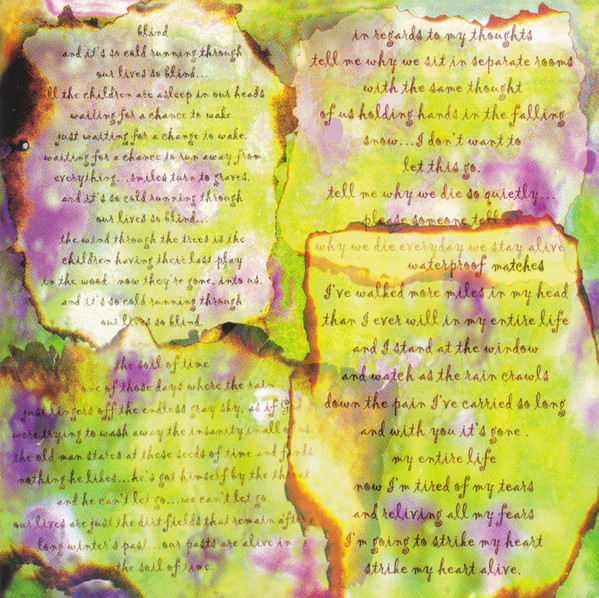 blind
and it's so cold running through
our lives so blind...
all the children are asleep in our heads
waiting for a chance to wake.
just waiting for a change to wake.
waiting for a chance to run away from
everything...smiles turn to graves.
and it's so cold running through
our lives so blind...
the wind through the trees is the
children having their last play
in the wood. now they're gone, into us.
and it's so cold running through
our lives so blind.
in regards to my thoughts
tell me why we sit in separate rooms
with the same thought
of us holding hands in the falling
snow...I don't want to
let this go.
tell me why we die so quietly...
please someone tell
why we die everyday we stay alive
the soil of time
one of those days where the rain
just lingers off the endless gray sky, as if God
were trying to wash away the insanity in all of us.
the old man stares at these seeds of time and finds
nothing he likes...he's got himself by the throat
and he can't let go...we can't let go.
our lives are just the dirt fields that remain after a
long winter's past...our pasts are alive in
the soil of time.
waterproof matches
I've walked more miles in my head
than I ever will in my entire life
and I stand at the window
and watch as the rain crawls
down the pain I've carried so long
and with you it's gone .
my entire life
now I'm tired of my tears
and reliving all my fears
I'm going to strike my heart
strike my heart alive.